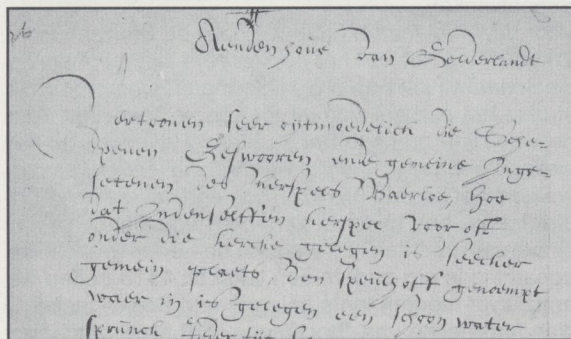 Aenden houe van Gelderlandt
Vertoonen seer oitmoedelick die Sche-
penen Geswooren ende gemeine Inge-
setenen des kerspels Baerloe, hoe
dat Indenselffen kerspel voor oft
onder die kercke gelegen is seecker
gemein plaets, den speulhoff genoempt,
waer in is gelegen een schoon water
sprunck